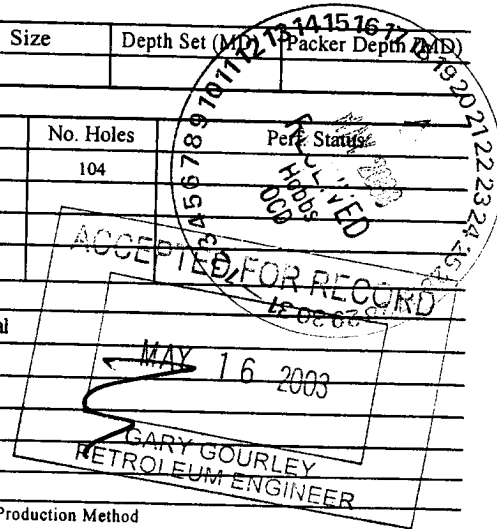 Size Depth Set (MD) Packer Depth (MD)
No. Holes Perf. Status
104
3 4 5 6 7 8 9 10 11 12 13 14 15 16 17 18 19 20 21 22 23 24 25
RECEIVED
Hobbs
OCD
29 30 31
ACCEPTED FOR RECORD
MAY 16 2003
GARY GOURLEY
PETROLEUM ENGINEER
Production Method